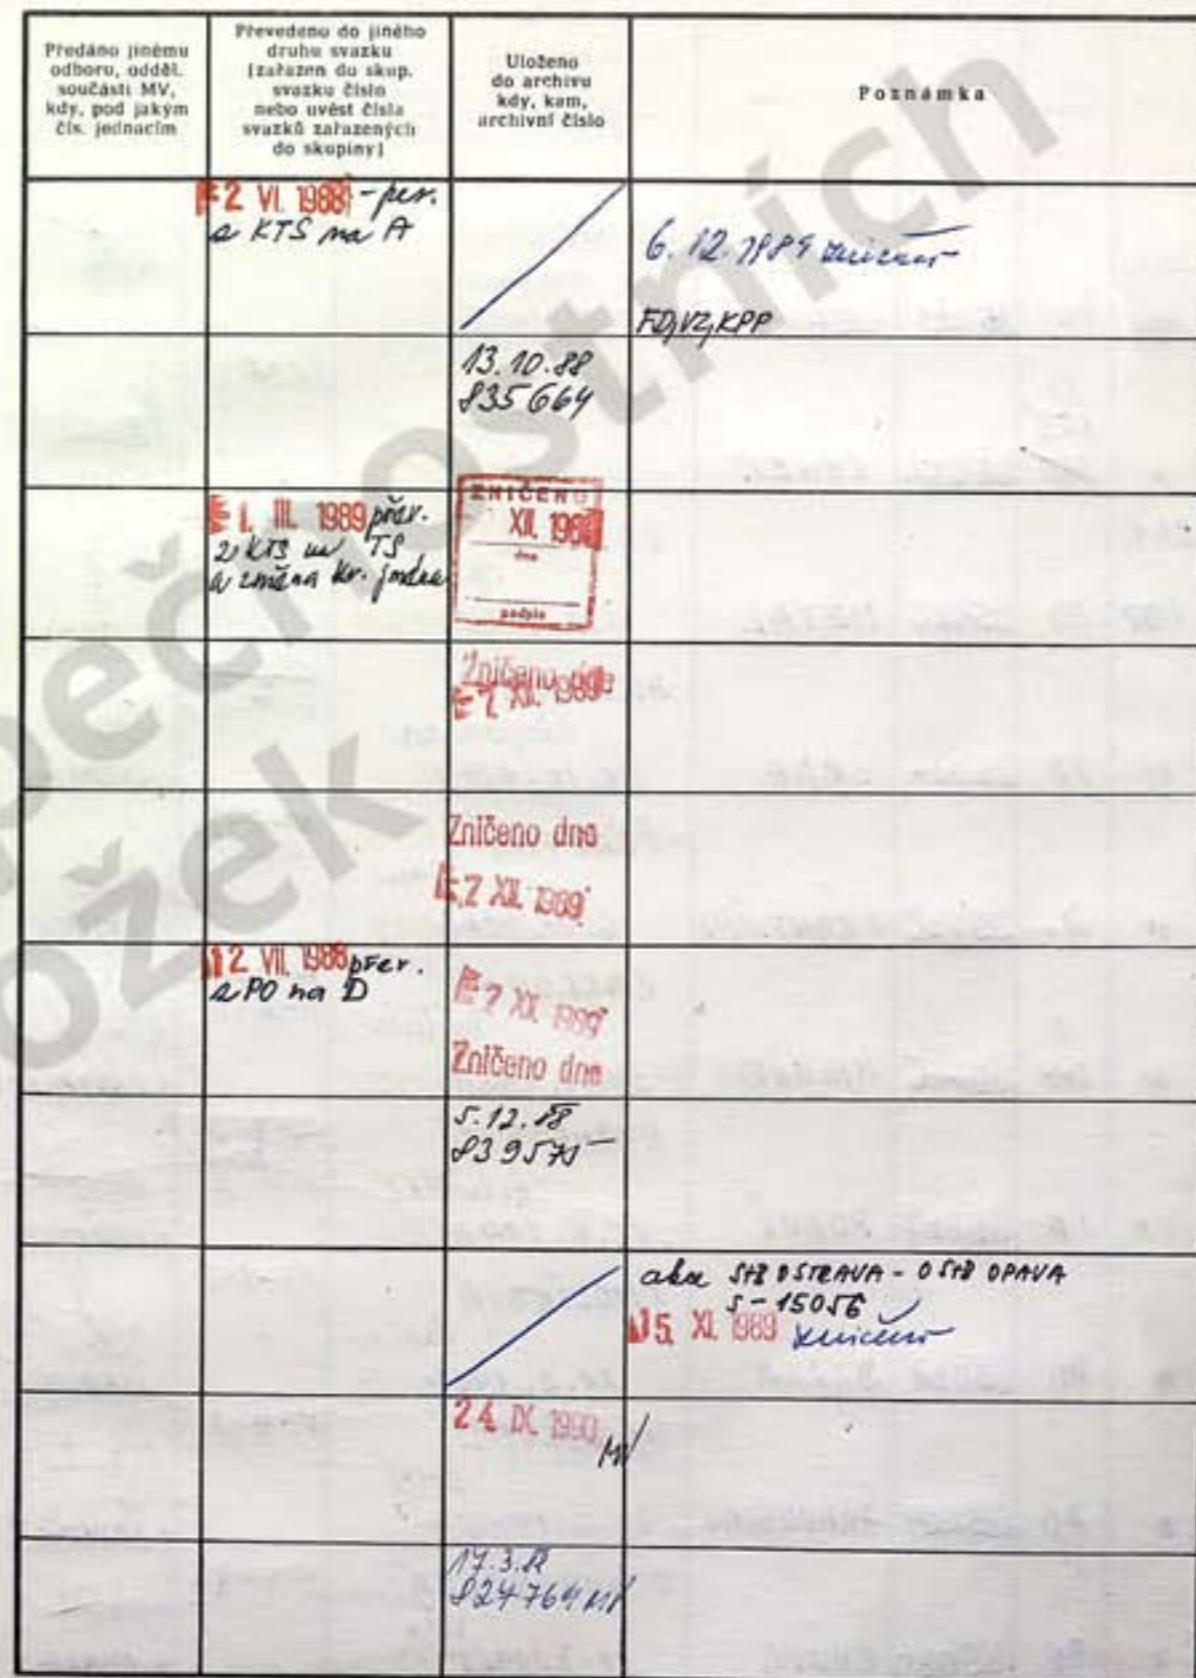 Předáno jinému
odboru, odděl.
součásti MV,
kdy, pod jakým
čís. jednacím
Převedeno do jiného
druhu svazku
(zařazen do skup.
svazku číslo
nebo uvést čísla
svazků zařazených
do skupiny)
Uloženo
do archivu
kdy, kam,
archivní číslo
Poznámka
2 VI. 1988 - per.
z KTS na A
6. 12. 1989 zničeno
FD, VZ, KPP
13. 10. 88
835 664
1. III. 1989 přev.
z KTS na TS
a změna kr. jména
ZNIČENO
XII. 198
dne
podpis
Zničeno dne
7 XII. 1989
Zničeno dne
7 XII. 1989
12 VII. 1988 přev.
z PO na D
7 XII. 1989
Zničeno dne
5. 12. 88
839575
akce StB OSTRAVA - O StB OPAVA
S-15056
15 XI. 1989 zničeno
24. IX. 1990
17. 3. 88
824764
ečnostních
ožek